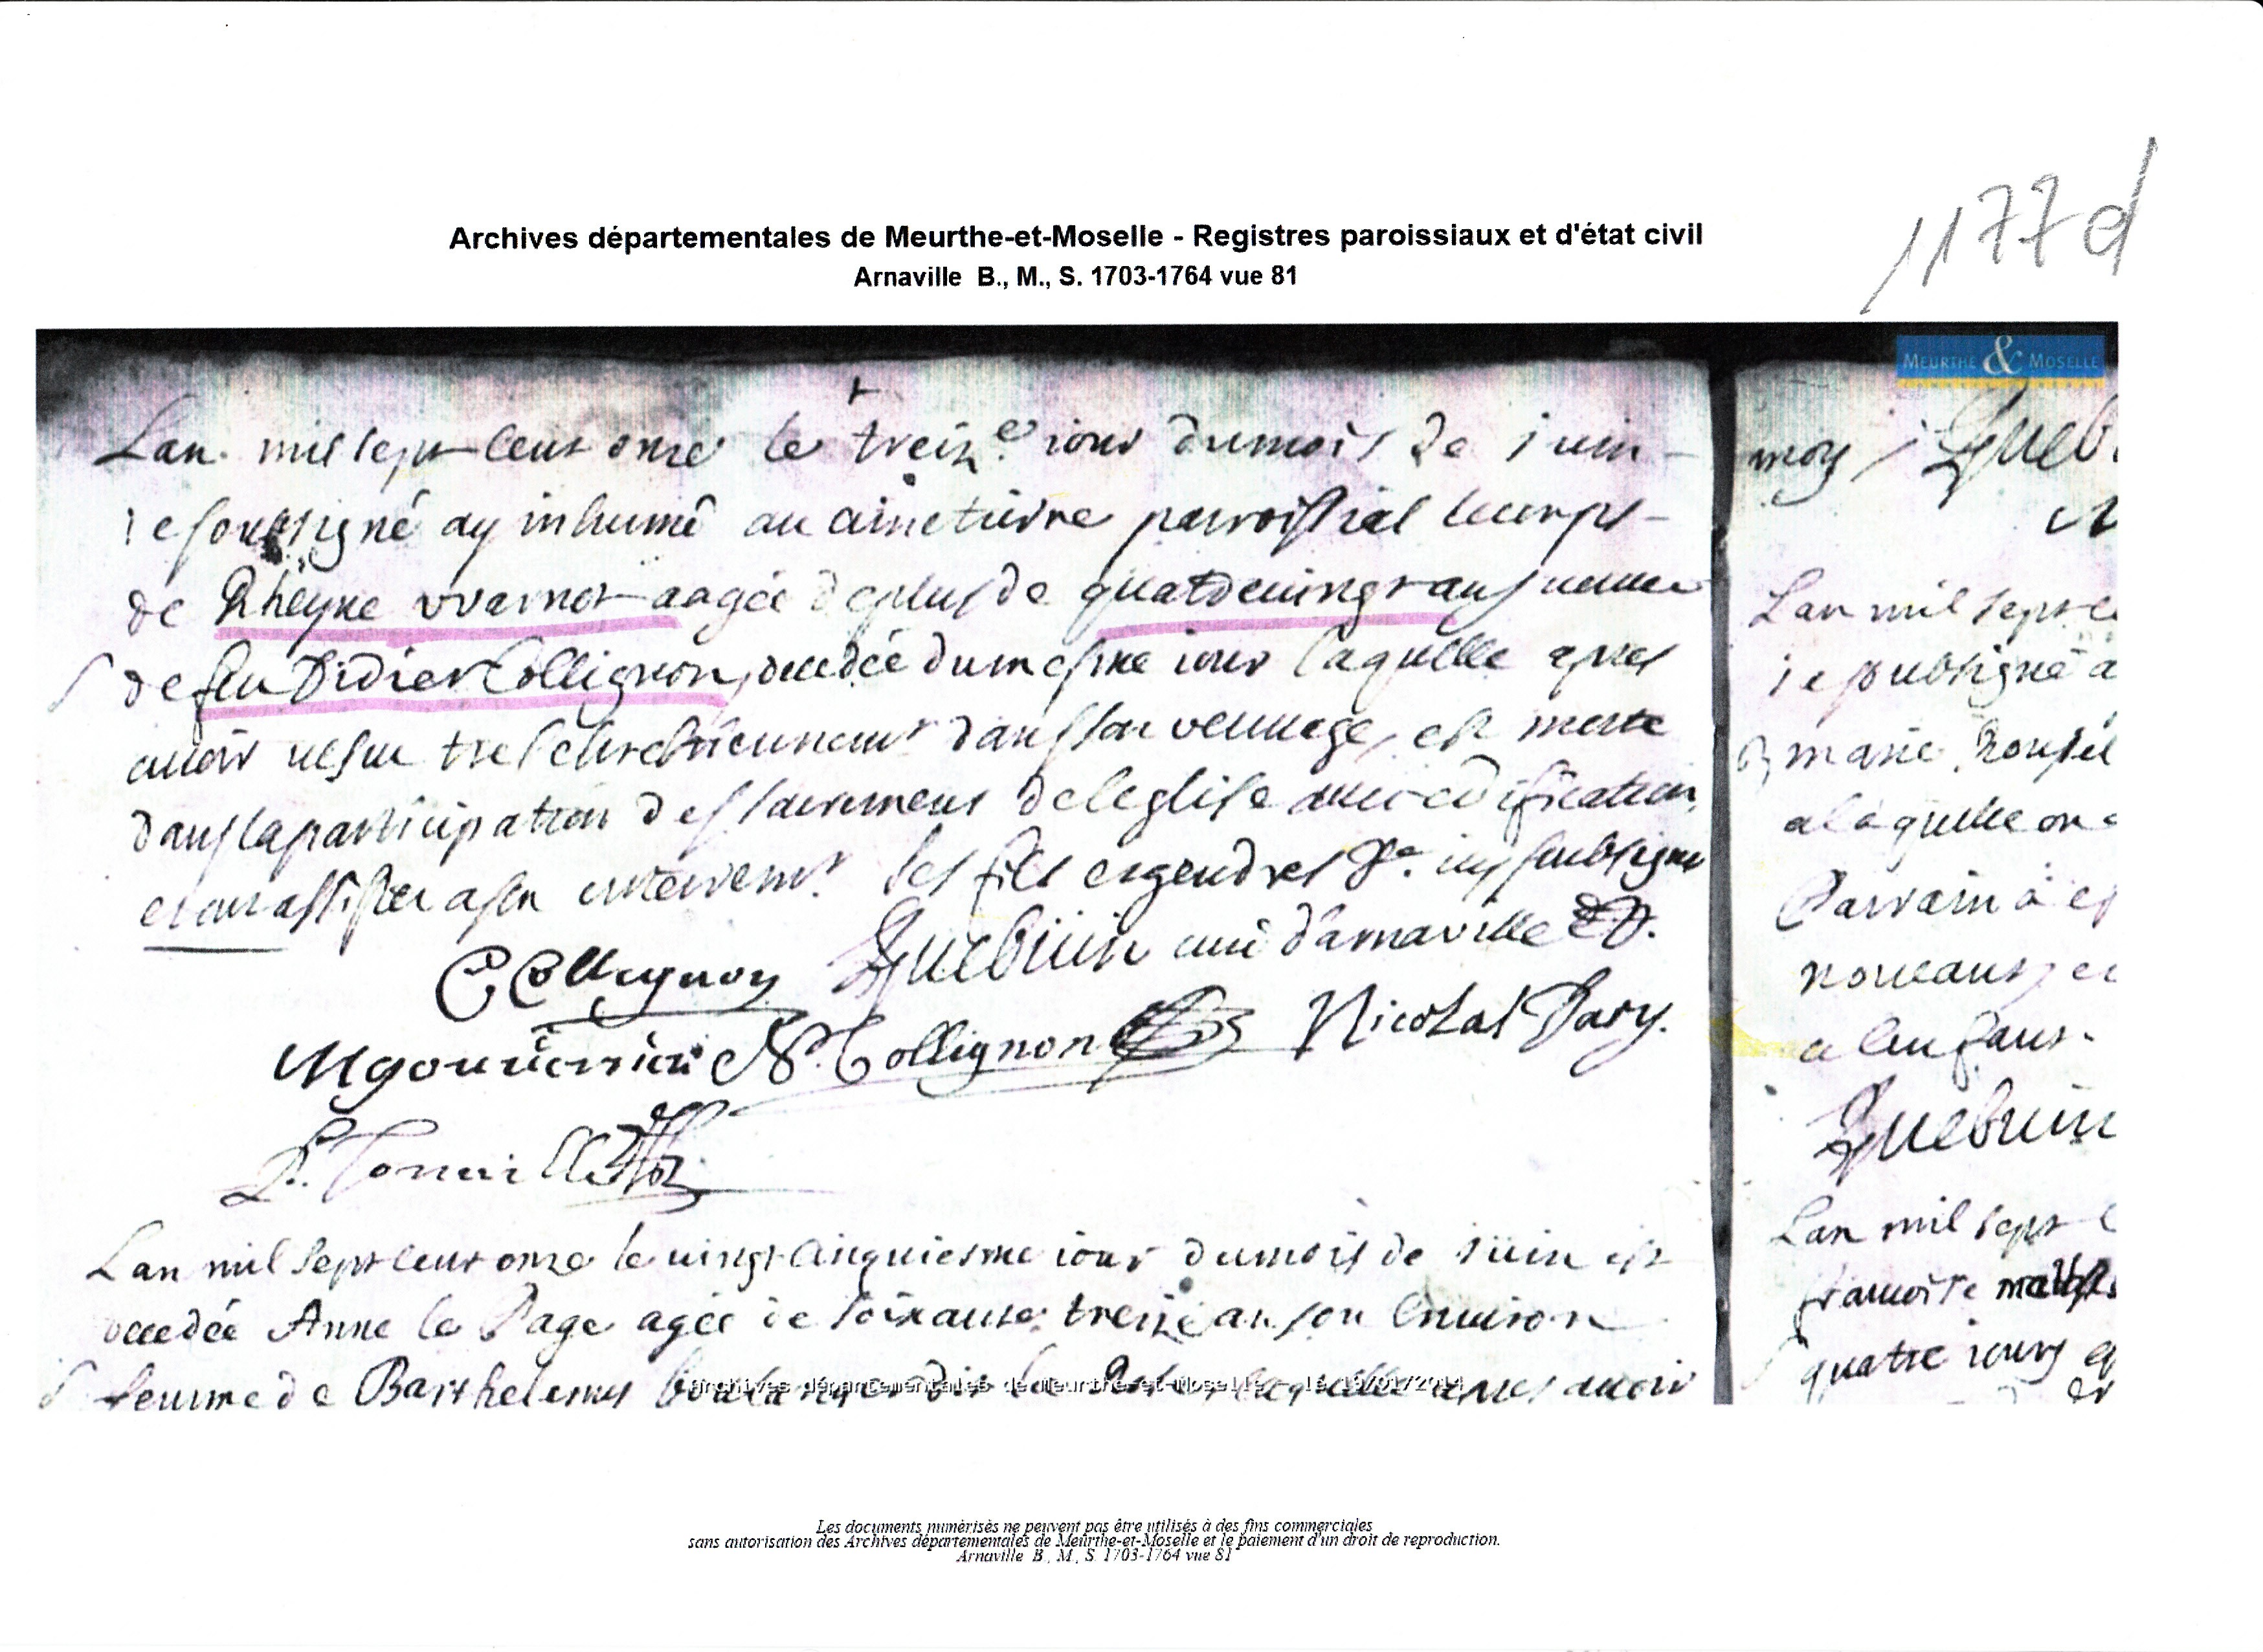 1177d
Archives départementales de Meurthe-et-Moselle - Registres paroissiaux et d'état civil
Arnaville B., M., S. 1703-1764 vue 81
MEURTHE & MOSELLE
Lan mil sept cent onze le treize iour du mois de iuin
ie soubsigné ay inhumé au cimetiere parroissial le corps
de Rheyne vvarnot aagée de plus de quatrevingt ans veuve
de feu Didier Collignon, decedée du mesme iour laquelle apres
auoir vescu tres chrestiennement dans son veuuage, est morte
dans la participation des sacremens de leglise auec edification
et ont assistez a son enterremt. ses fils et gendres icy soubsignes
C Collignon Guebüin curé d'arnaville
N. Collignon Nicolas Pary.
Lan mil sept cent onze le uingt cinquiesme iour du mois de iüin est
decedée Anne le Page agée de soixante treize ans ou enuiron
femme de Barthelemy apres auoir
moy
Lan mil sept
ie soubsigné a
marie
a laquelle on
Parrain a
a lenfant.
Guebüin
Lan mil sept
quatre iours
archives départementales de Meurthe-et-Moselle - le 19/01/2014
Les documents numérisés ne peuvent pas être utilisés à des fins commerciales
sans autorisation des Archives départementales de Meurthe-et-Moselle et le paiement d'un droit de reproduction.
Arnaville B., M., S. 1703-1764 vue 81